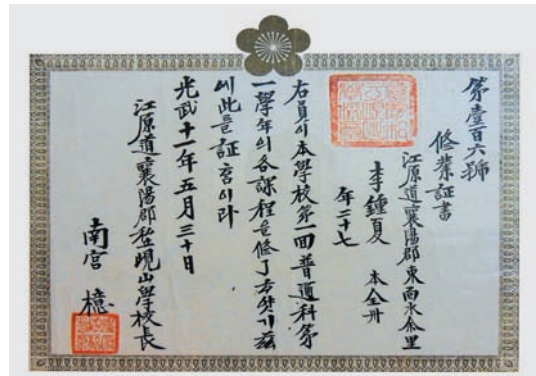 第壹百六號
修業証書
江原道襄陽郡東面水余里
李鍾夏 本全州
年二十七
右員이本學校第一回普通科第
一學年의各課程을修了ᄒᆞ얏기玆
에此를証홈이라
光武十一年五月三十日
江原道襄陽郡私立峴山學校長
南宮檍